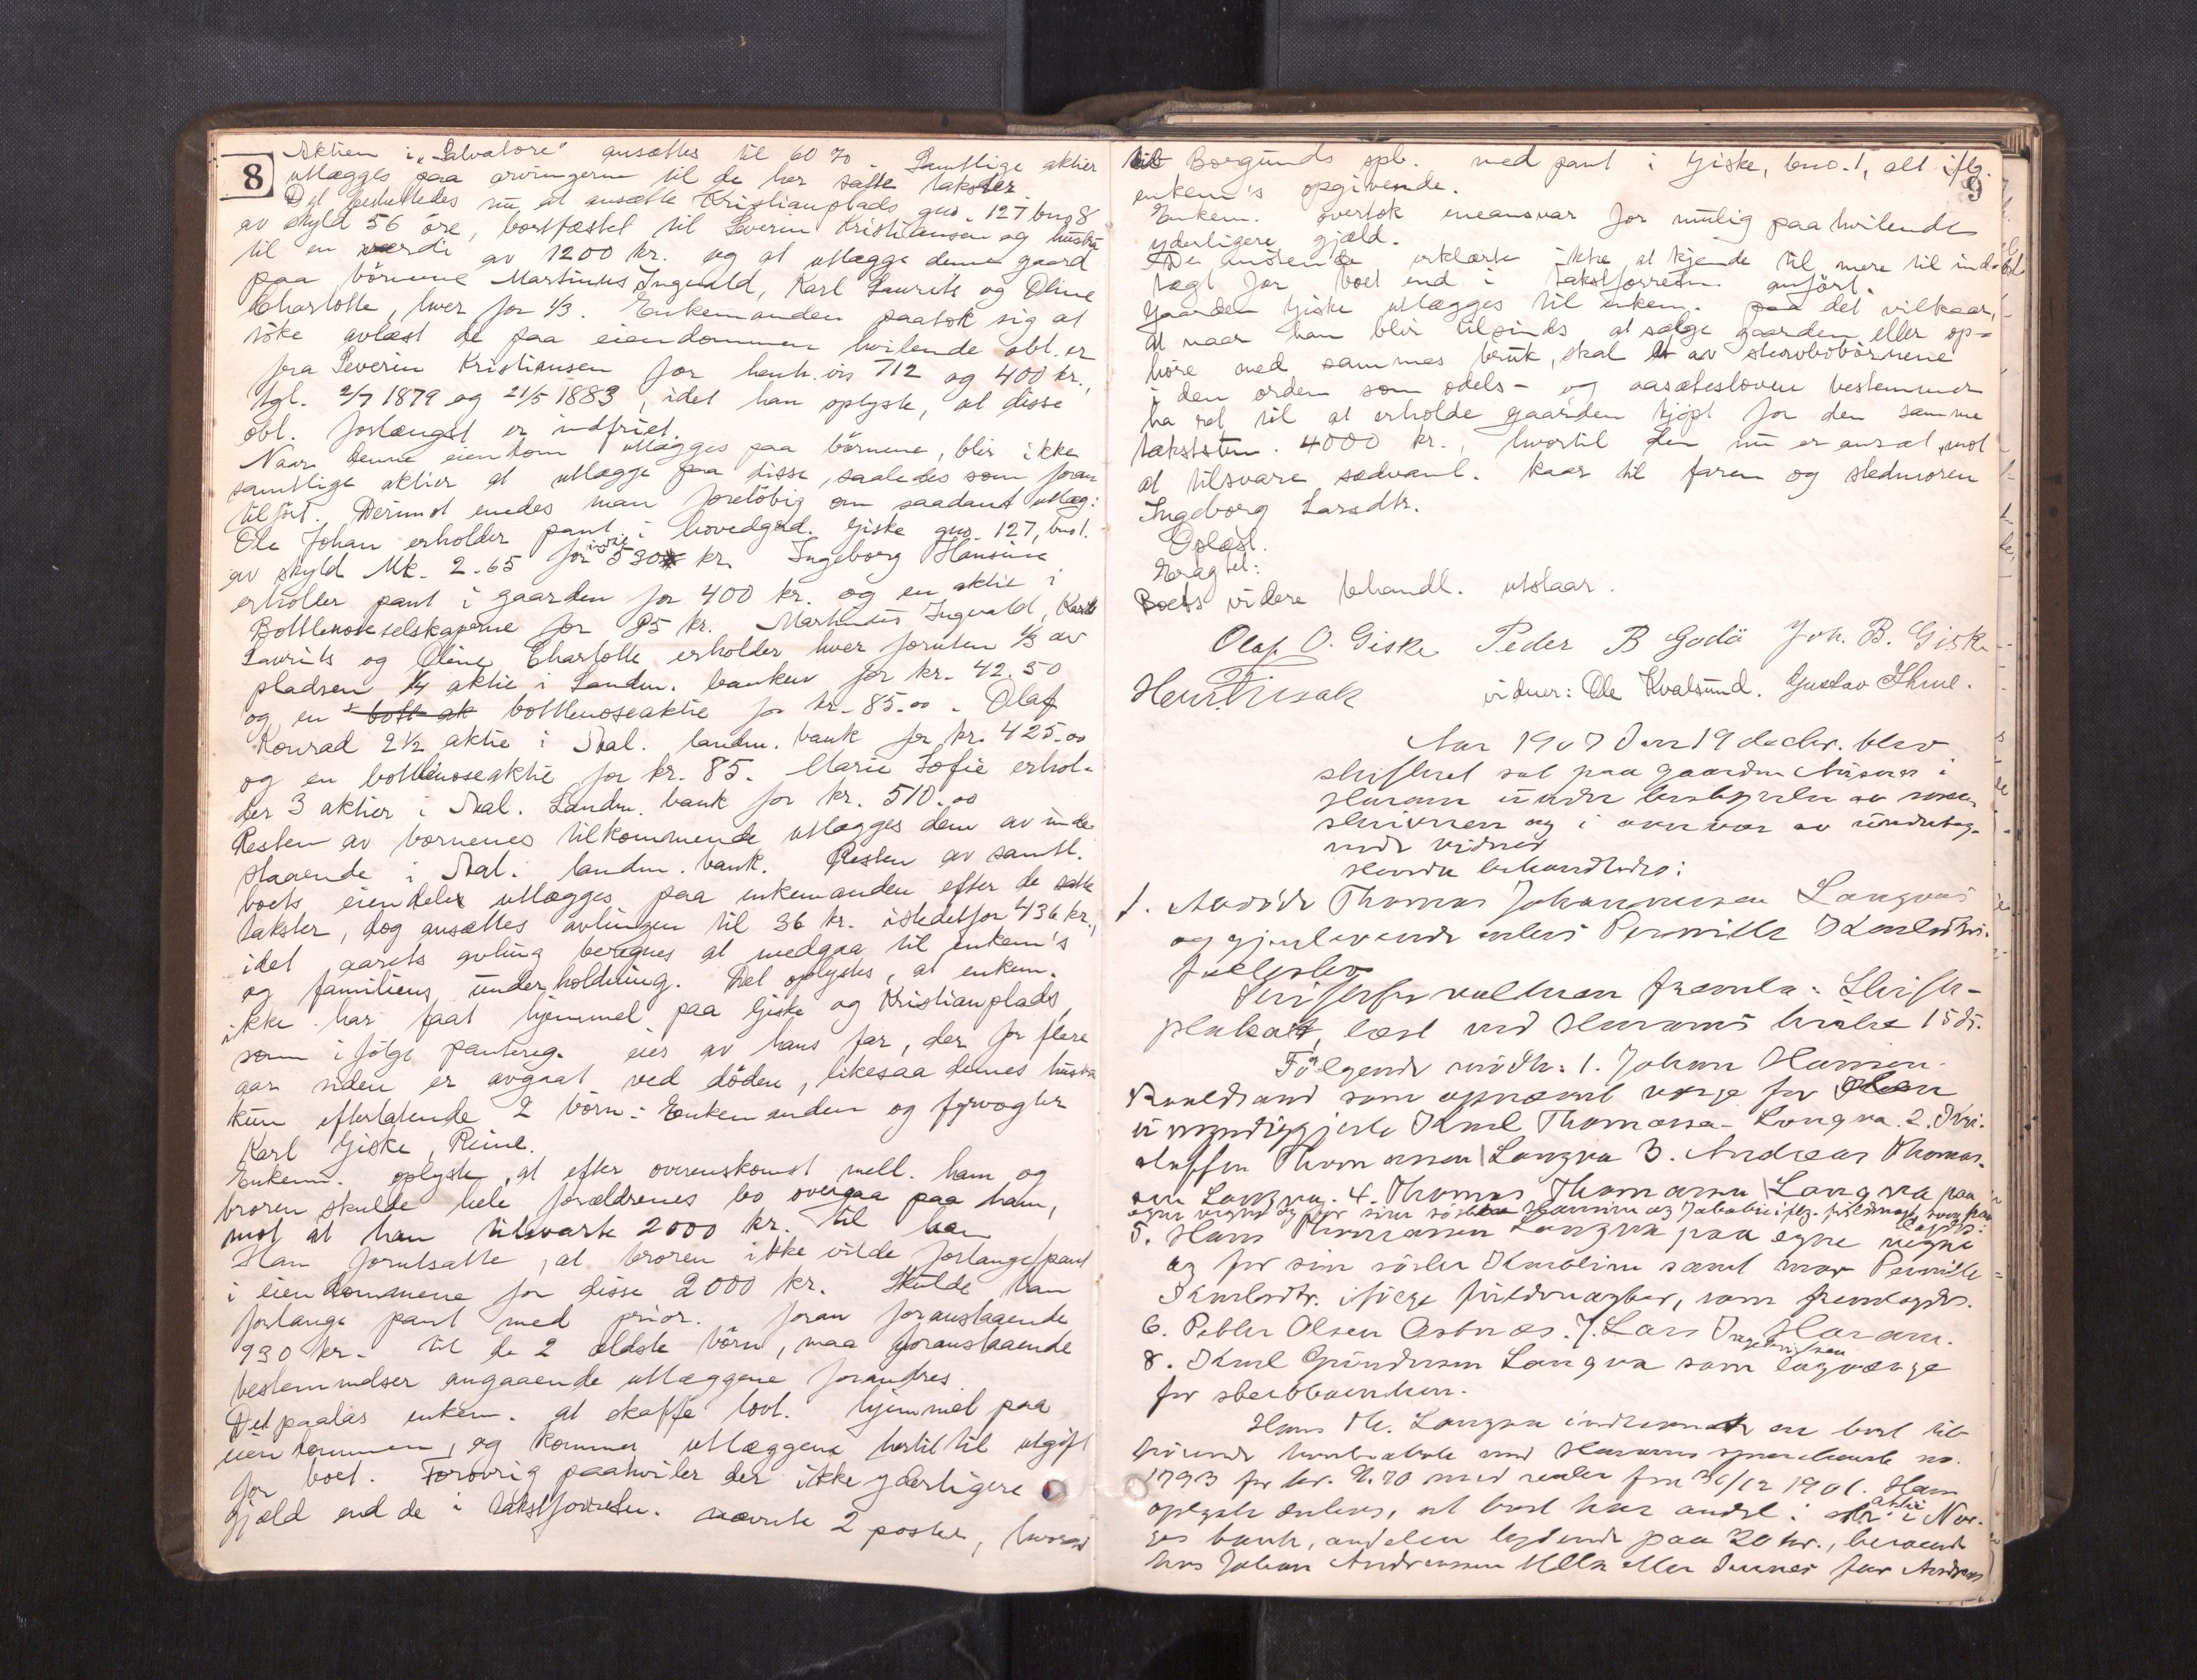 8
Aktien i "Salvatore" ansættes til 60 %. Samtlige aktier
utlægges paa arvingerne til de her satte takster.
Det besluttedes nu at ansætte Kristianplads gno. 127 bno 8
av skyld 56 öre, bortfæstet til Severin Kristiansen og hustru
til en værdi av 1200 kr. og at utlægge denne gaard
paa börnene Martinus Ingvald, Karl Laurits og Oline
Charlotte, hver for 1/3. Enkemanden paatok sig at
söke avlæst de paa eiendommen hvilende obl. er
fra Severin Kristiansen for henh.vis 712 og 400 kr.,
tgl. 2/7 1879 og 21/5 1883, idet han oplyste, at disse
obl. forlængst er indfriet.
Naar denne eiendom utlægges paa börnene, blir ikke
samtlige aktier at utlægge paa disse, saaledes som foran
tilfört. Derimot enedes man foreløbig om saadant utlæg:
Ole Johan erholder pant i hovedgrd. Giske gno. 127, bno 1.
av skyld Mk. 2.65 for 530 kr. Ingeborg Hansine
erholder pant i gaarden for 400 kr. og en aktie i
Bottlenoseselskaperne for 85 kr. Martinus Ingvald, Karl
Laurits og Oline Charlotte erholder hver foruten 1/3 av
pladsen 1/4 aktie i Landm. banken for kr. 42.50
og en bottlenoseaktie for kr. 85.00. Olaf
Konrad 2 1/2 aktie i Aal. landm. bank for kr. 425.00
og en bottlenoseaktie for kr. 85. Marie Sofie erhol-
der 3 aktier i Aal. Landm. bank for kr. 510.00
Resten av børnenes tilkommende utlægges dem av inde-
staaende i Aal. landm. bank. Resten av samtl.
boets eiendeler utlægges paa enkemanden efter de satte
takster, dog ansættes avlingen til 36 kr. istedetfor 436 kr.,
idet aarets avling beregnes at medgaa til enkem's
og familiens underholdning. Det oplystes, at enkem.
ikke har faat hjemmel paa Giske og Kristianplads,
som ifölge pantereg. eies av hans far, der for flere
aar siden er avgaat ved döden, likesaa dennes hustru
kun efterlatende 2 börn: Enkemanden og fyrvogter
Karl Giske,
Enkem. oplyste, at efter overenskomst mell. ham og
broren skulde hele forældrenes bo overgaa paa ham,
mot at han tilsvarte 2000 kr. til
Han forutsatte, at broren ikke vilde forlange pant
i eiendommene for disse 2000 kr. Skulde han
forlange pant med prior. foran foranstaaende
930 kr. til de 2 ældste börn, maa foranstaaende
bestemmelser angaaende utlæggene forandres.
Det paalas enkem. at skaffe lovl. hjemmel paa
eiendommen, og kommer utlæggene hertil til utgift
for boet. Forøvrig paahviler der ikke yderligere
gjæld end de i takstforretn. nævnte 2 poster, hvorav
9
til Borgunds spb. med pant i Giske, bno. 1, alt iflg.
enkem's opgivende.
Enkem. overtok eneansvar for mulig paahvilende
yderligere gjæld.
De mötende erklærte ikke at kjende til mere til ind-
tægt for boet end i takstforretn. anfört.
Gaarden Giske utlægges til enkem. paa det vilkaar,
at naar han blir tilsinds at sælge gaarden eller op-
höre med sammes bruk, skal av stervbobörnene
i den orden som odels- og aasætesloven bestemmer
ha ret til at erholde gaarden kjöpt for den samme
takstsum 4000 kr., hvortil den nu er ansat, mot
at tilsvare sedvanl. kaar til faren og stedmoren
Ingeborg Larsdtr.
Oplæst.
Eragtet:
Boets videre behandl. utstaar.
Olaf O. Giske Peder B Godö Joh. B. Giske
vidner: Ole Kvalsund. Gustav Thue.
Aar 1907 den 19 decbr. blev
skifteret sat paa gaarden i
Haram under bestyrelse av soren-
skriveren og i overvær av underteg-
nede vidner
Herunder behandledes:
1. Avdöde Thomas Johannesen Longvas
og gjenlevende enkes Pernille Knutsdtrs.
fællesbo
Skifteforvalteren fremla: Skifte-
plakat, læst ved Harams kirke 15 ds.
Følgende mödte: 1. Johan Hansen
som opnævnt verge for den
umyndiggjorte Knut Thomassen Longva. 2. Kri-
stoffer Thomassen Longva 3. Andreas Thomas-
sen Longva. 4. Thomas Thomassen Longva paa
egne vegne og for sine söstre
5. Hans Thomassen Longva paa egne vegne
og for sin söster Karoline samt mor Pernille
Knutsdtr. ifölge fuldmagter, som fremlagdes.
6. Petter Olsen Astnæs. 7. Lars Haram.
8. Knut Longva som lagverge
for sterboenken.
Hans Th. Longva indleverte en boet til-
hörende kontrabok med Harams sparebank no.
1793 for kr. med renter fra 30/12 1901. Han
oplyste endvis, at boet har andel i aktie i Nor-
ges bank, andelen lydende paa 20 kr., beroende
hos Johan Andreassen eller dennes far Andreas